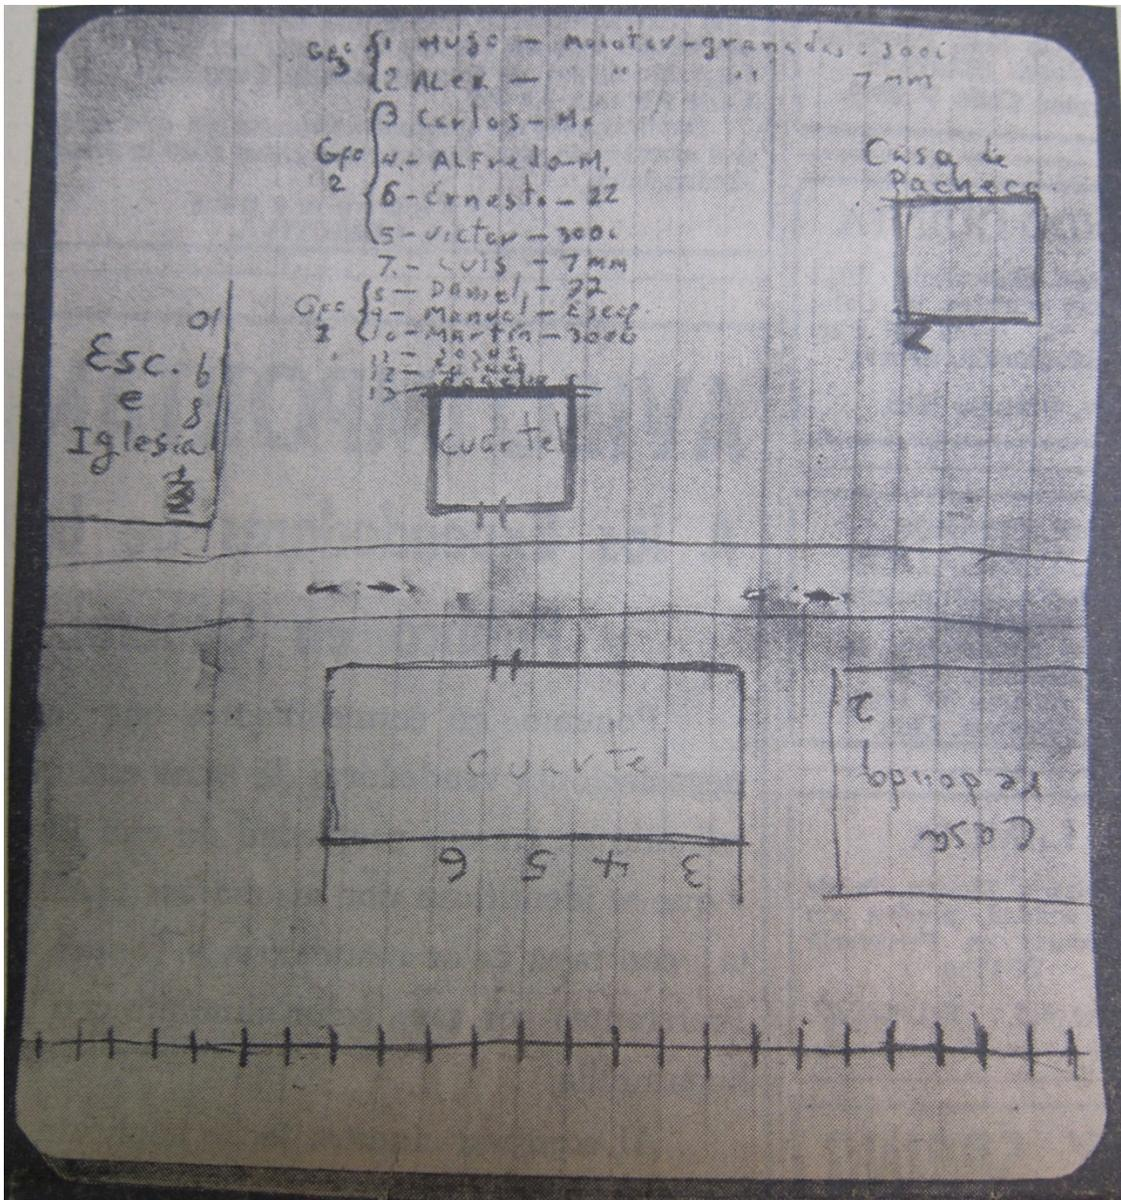 Gpo 3
1 Hugo — Molotov-granadas - 300i
2 ALex — " " 7 mm
Gpo 2
3 Carlos - M1
4.- ALFredo-M1
6-Ernesto - 22
5-Victor - 300i
7.- Luis - 7 mm
Gpo 1
8 - Daniel - 22
9 - Manuel - Escop.
10-Martín - 300i
11 -
12 -
13 -
Casa de
Pacheco
Esc.
e
Iglesia
10
9
8
7
cuartel
cuartel
6 5 4 3
2
Casa
redonda